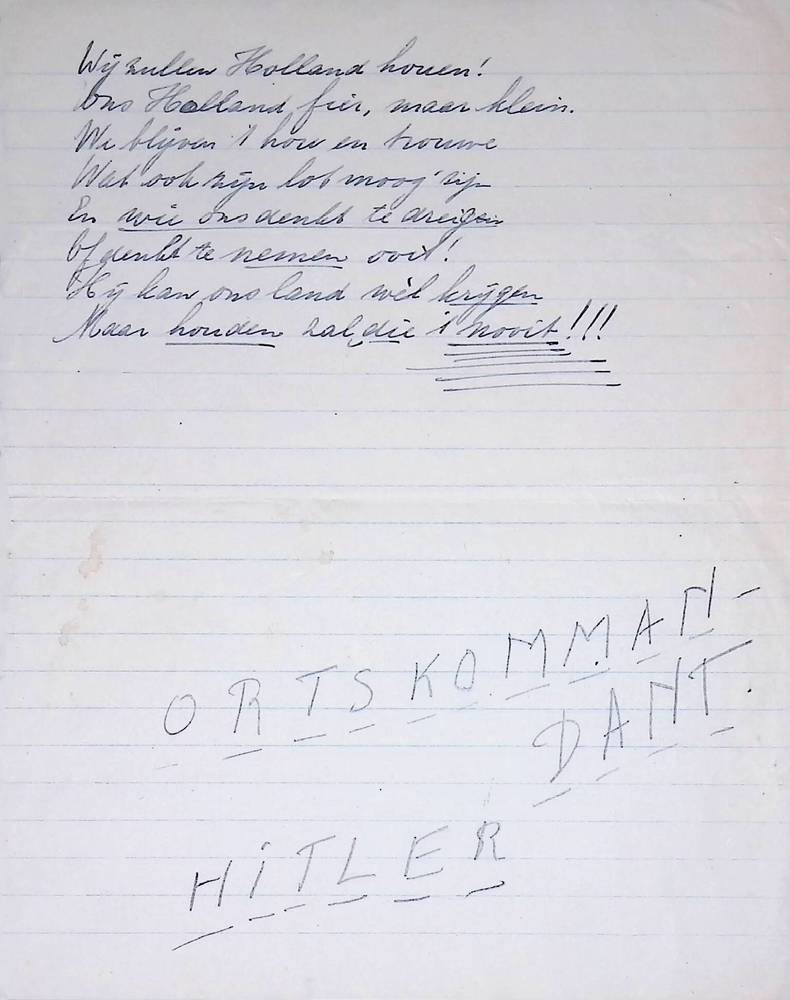 Wij zullen Holland houen!
Ons Holland fier, maar klein.
We blijven 't hou en trouwe
Wat ook zijn lot moog' zijn
En wie ons denkt te dreigen
Of denkt te nemen ooit!
Hij kan ons land wèl krijgen
Maar houden zal die 't nooit!!!
ORTSKOMMAN-
DANT.
HiTLER